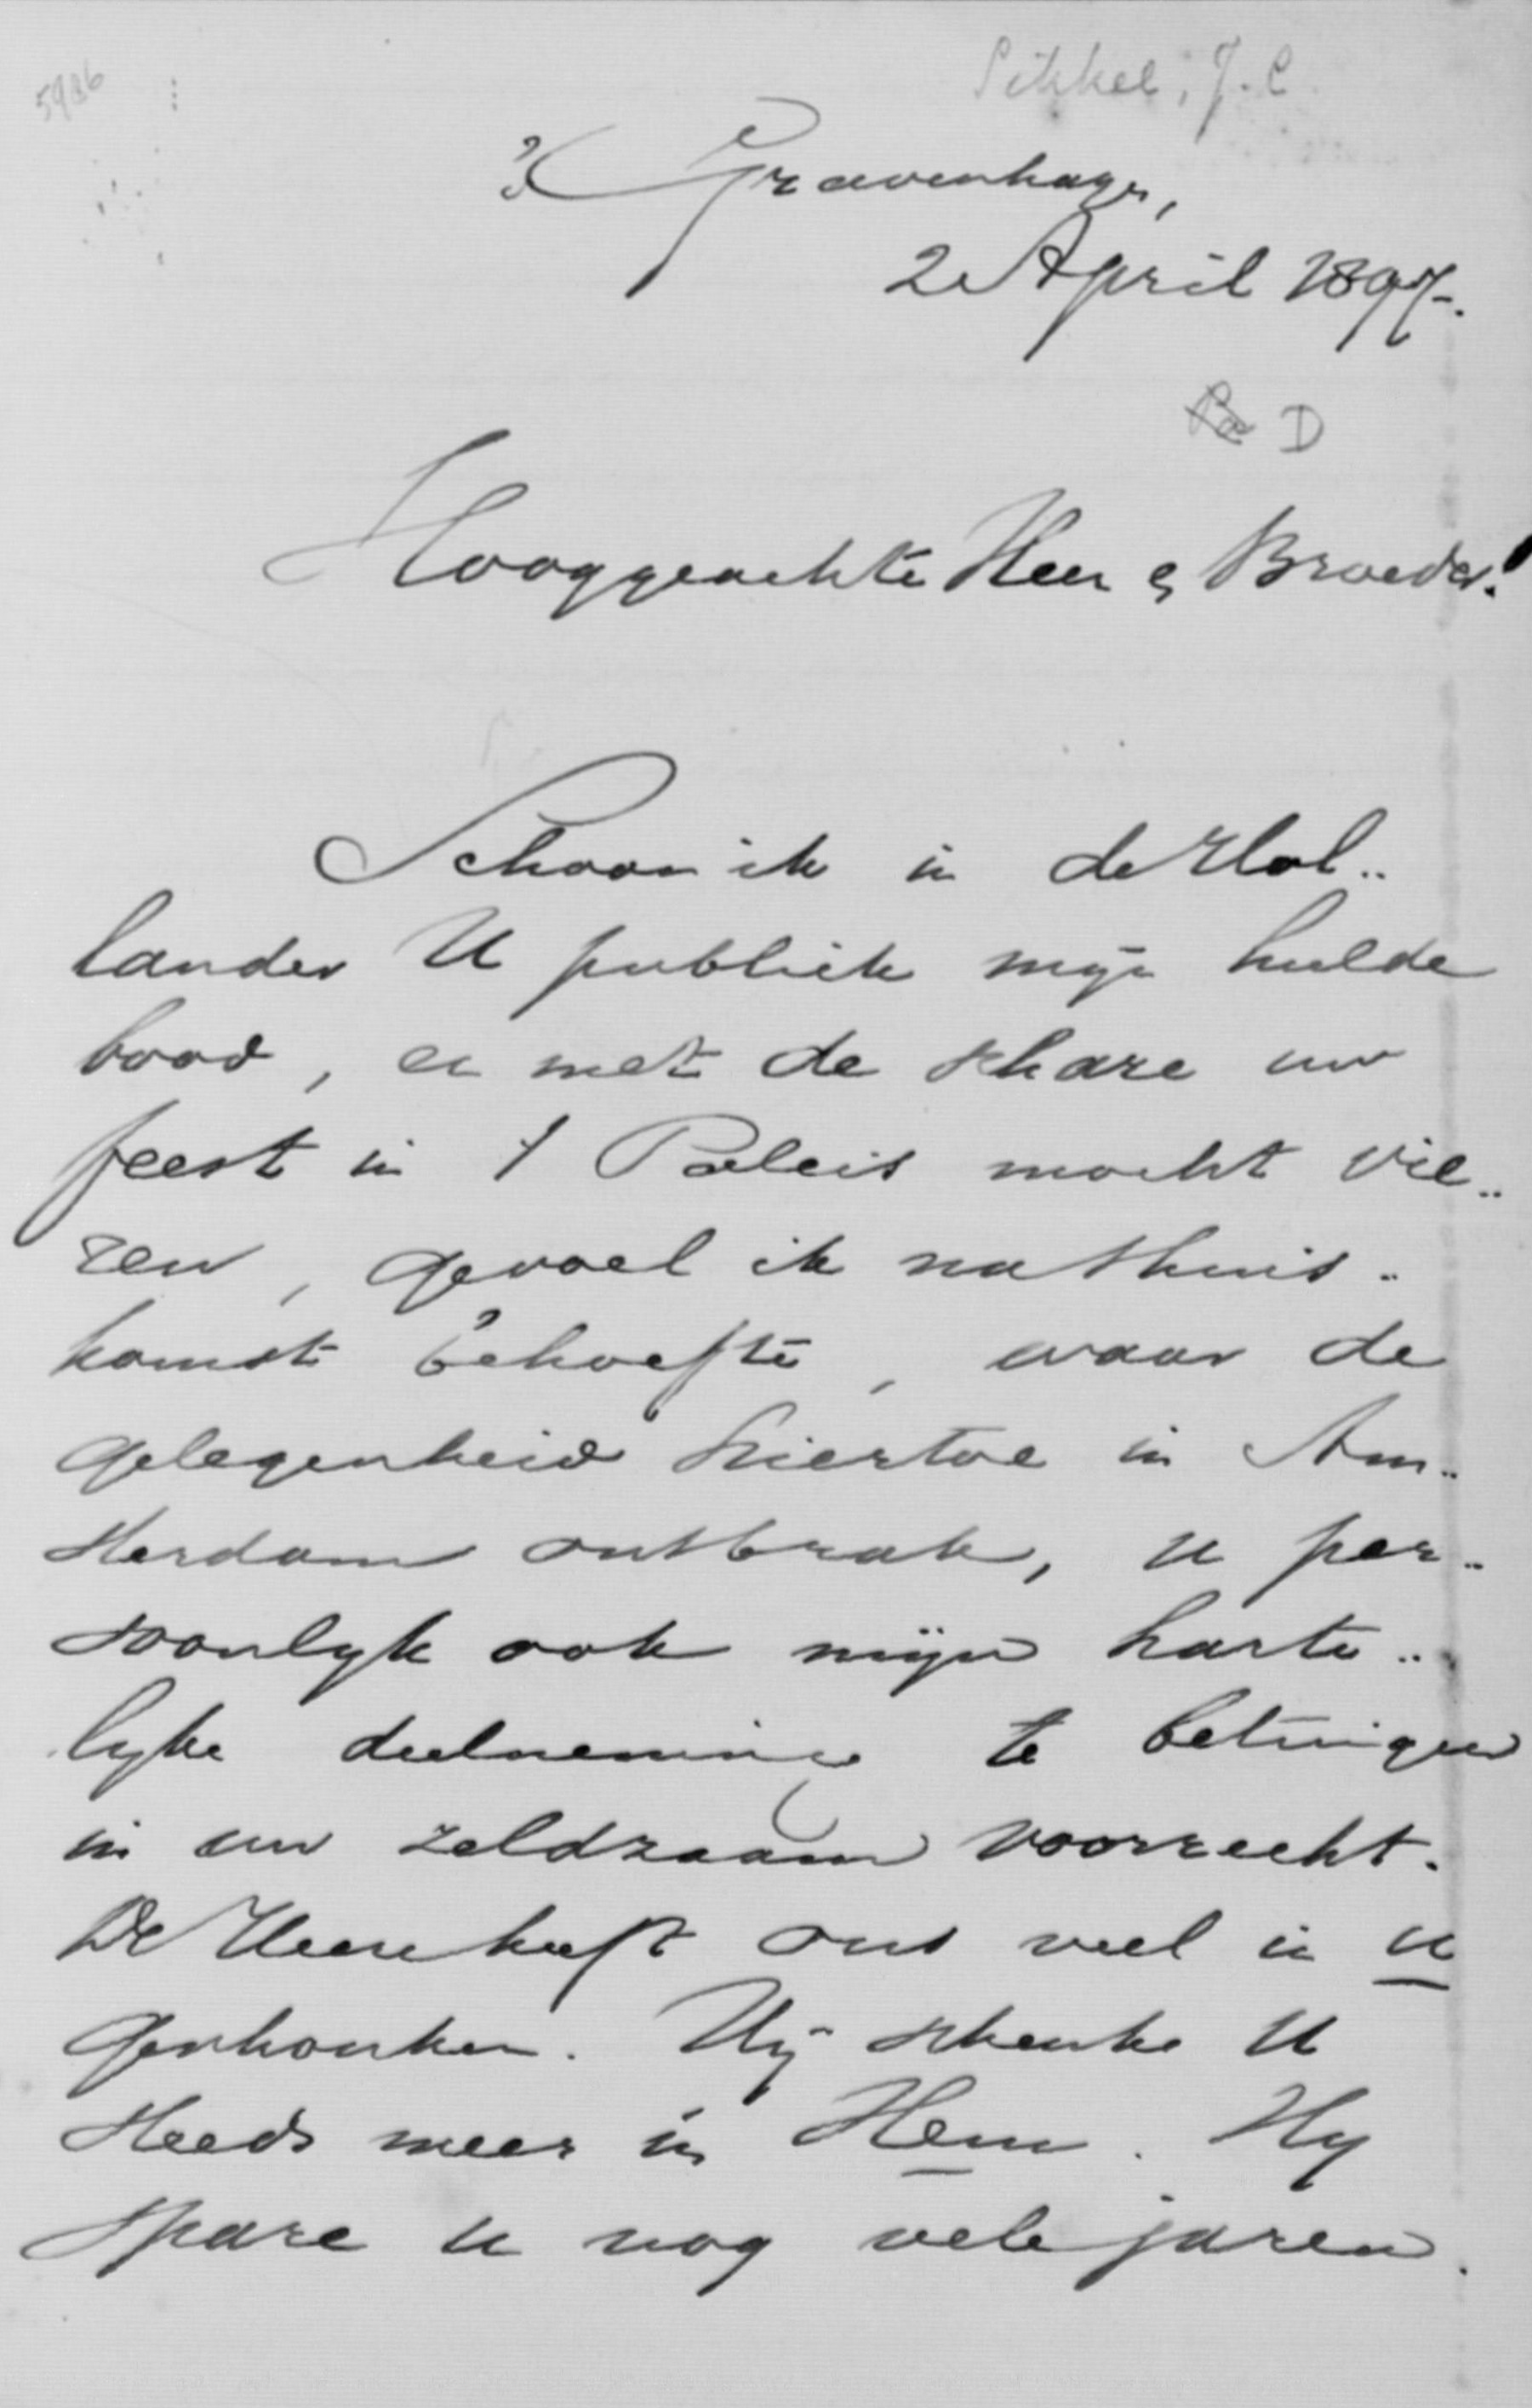 5986
Sikkel, J. C
's Gravenhage,
2 April 1897.
D
Hooggeachte Heer & Broeder!
Schoon ik in de Hol-
lander U publiek mijn hulde
bood, en met de schare uw
feest in 't Paleis mocht vie-
ren, gevoel ik na thuis-
komst behoefte, waar de
gelegenheid hiertoe in Am-
sterdam ontbrak, u per-
soonlyk ook mijn harte-
lyke deelneming te betuigen
in uw zeldzaam voorrecht.
De Heere heeft ons veel in u
geschonken. Hij schenke U
steeds meer in Hem. Hy
spare u nog vele jaren.